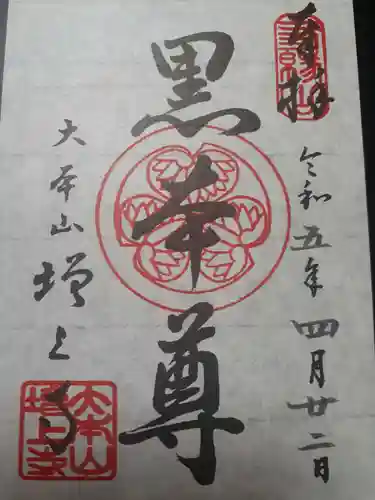 奉拝
令和五年四月廿二日
黒本尊
大本山
増上寺
大本山
増上寺